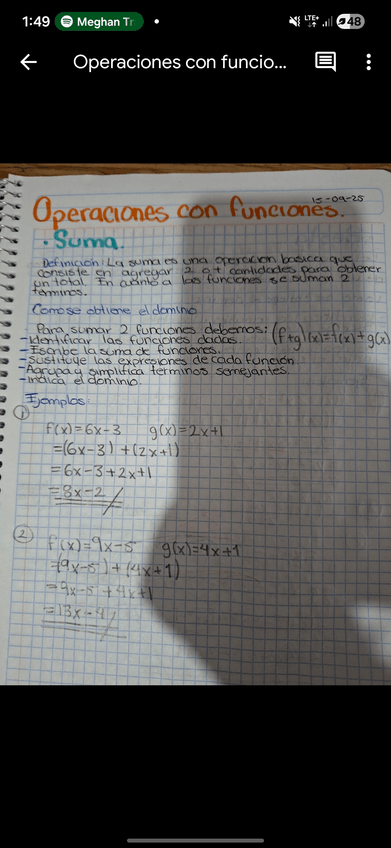 1:49 Meghan Tr • LTE+ 48
Operaciones con funcio...
15-09-25
Operaciones con funciones.
• Suma.
Definicion: La suma es una operacion basica que
consiste en agregar 2 o + cantidades para obtener
un total. En cuanto a las funciones se suman 2
terminos.
Como se obtiene el domino
Para sumar 2 funciones debemos: (f+g)(x)=f(x)+g(x)
-Identificar las funciones dadas.
-Escribe la suma de funciones.
-Sustituye las expresiones de cada función
-Agrupa y simplifica terminos semejantes.
-Indica el dominio.
Ejemplos:
1
f(x)=6x-3 g(x)=2x+1
=(6x-3)+(2x+1)
=6x-3+2x+1
=8x-2
2
f(x)=9x-5 g(x)=4x+1
=(9x-5)+(4x+1)
=9x-5+4x+1
=13x-4